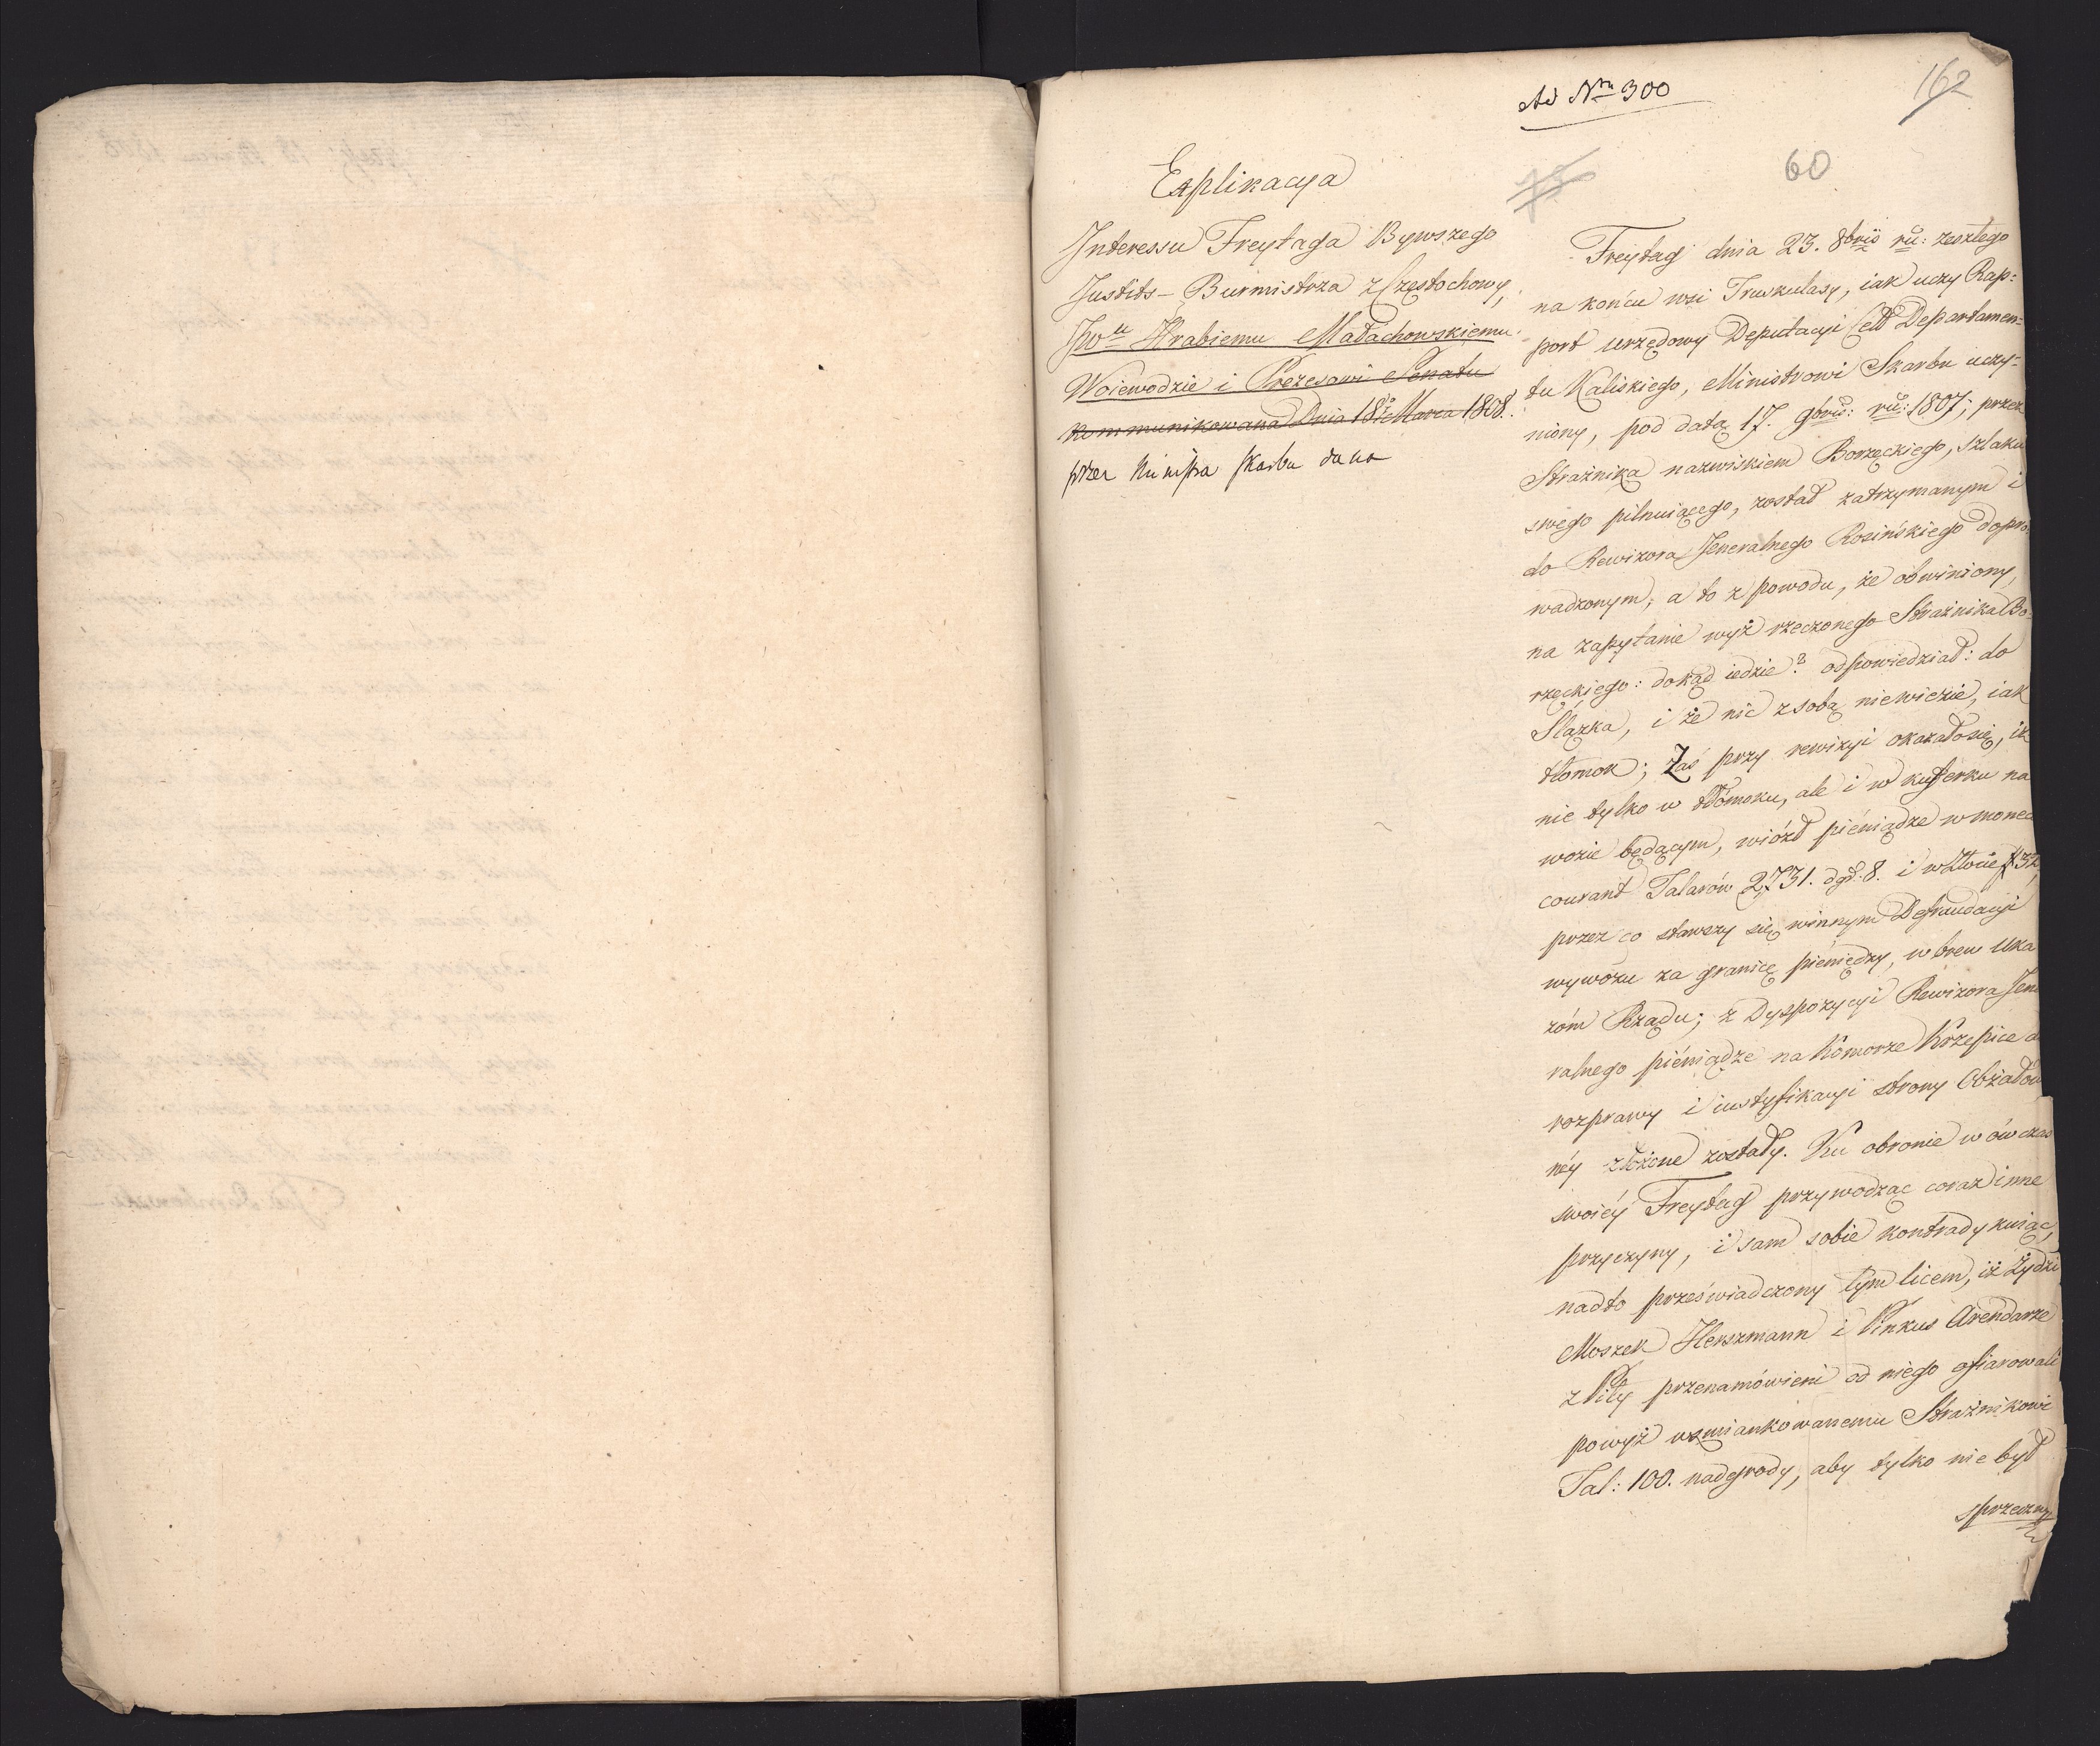 Ad Nru 300
162
60
Explikacya
Interessu Freytaga Bywszego
Justits-Burmistrza z Częstochowy,
JWu Hrabiemu Małachowskiemu
Woiewodzie i Prezesowi Senatu
kommunikowana Dnia 18. Marca 1808.
przez Ministra skarbu dana
Freytag dnia 23. 8bris ru: zeszłego
na końcu wsi Truskulasy, iak uczy Rap=
port urzędowy Deputacyi Cell Departamen=
tu Kaliskiego, Ministrowi Skarbu uczy=
niony, pod datą 17. 9bris: ru: 1807; przez
Strażnika nazwiskiem Borzęckiego, szlaku
swego pilnuiącego, został zatrzymanym i
do Rewizora Jeneralnego Rosińskiego dopro=
wadzonym; a to z powodu, że obwiniony,
na zapytanie wyż rzeczonego Strażnika Bo=
rzęckiego: dokąd iedzie? odpowiedział: do
Slązka, i że nic z sobą niewiezie, iak
tłomok; Zaś przy rewizyi okazałosię, iż
nie tylko w tłómoku, ale i w kuferku na
wozie będącym, wiózł piéniądze w monec
courant Talarów 2,731. dgr: 8. i w Złocie # 32,
przez co stawszy się winnym Defraudacyi
wywozu za granicę piéniędzy, wbrew Uka
zóm Rządu; z Dyspozycyi Rewizora Jene
ralnego piéniądze na Komorze Krzepice do
rozprawy i iustyfikacyi strony Obżałow
néy złożone zostały. Ku obronie wówczas
swoiéy Freytag przywodząc coraz inne
przyczyny, i sam sobie kontradykuiąc,
nadto przeświadczony tym licem, iż Żydzi
Moszek Herszmann i Pinkus Arendarze
z Piły przenamówieni od niego ofiarowali
powyż wzmiankowanemu Strażnikowi
Tal: 100. nadgrody, aby tylko nie był
sprzeczny